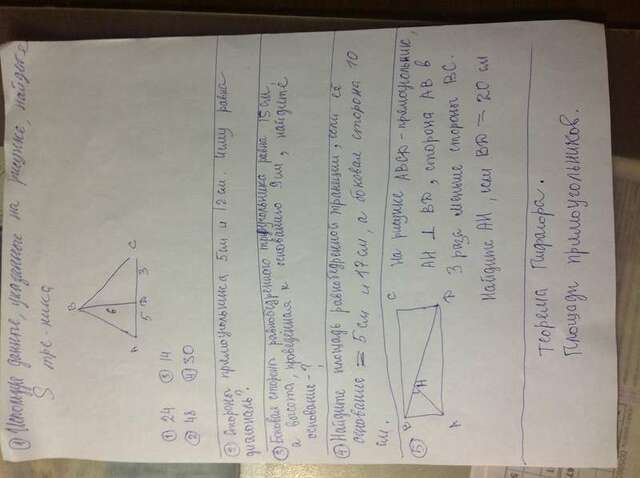 ① Используя данные, указанные на рисунке, найдите
S тре-ника
B
6
A 5 D 3 C
① 24 ③ 14
② 48 ④ 30
② Стороны прямоугольника 5см и 12см. Чему равна
диагональ?
③ Боковая сторона равнобедренного треугольника равна 15см,
а высота, проведенная к основанию 9см, найдите
основание-?
④ Найдите площадь равнобедренной трапеции, если её
основание = 5см и 17см, а боковая сторона 10
см.
⑤ B C
H
A D
На рисунке ABCD-прямоугольник,
AH ⊥ BD, сторона AB в
3 раза меньше стороны BC.
Найдите AH, если BD = 20 см
Теорема Пифагора.
Площади прямоугольников.